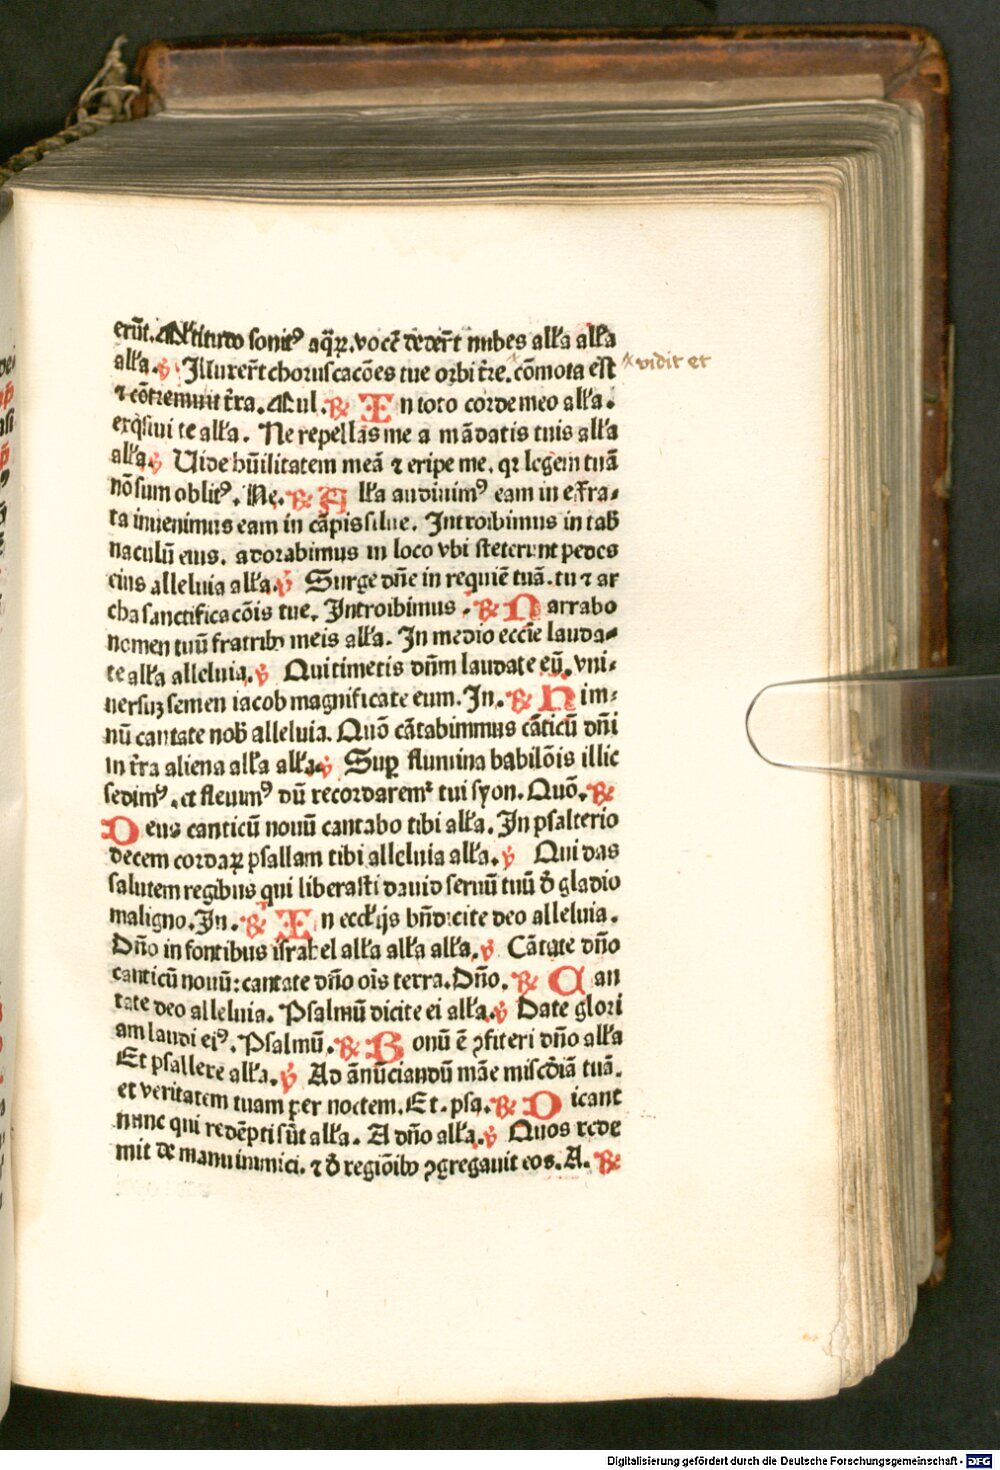 erũt. Multitudo sonitꝰ aq̃ꝝ. vocẽ dedert̃ nubes all'a all'a
all'a. ℣ Illuxert̃ choruscacões tue orbi tr̃e. cõmota est
vidit et
⁊ cõtremuit tr̃a. Mul. ℟ In toto corde meo all'a.
exq̃siui te all'a. Ne repellas me a mãdatis tuis all'a
all'a. ℣ Uide hũilitatem meã ⁊ eripe me. qꝛ legem tuã
nõ sum oblitꝰ. Ne. ℟ All'a audiuimꝰ eam in effra⸗
ta inuenimus eam in cãpis silue. Introibimus in tab̃
naculũ eius. adorabimus in loco vbi steterunt pedes
eius alleluia all'a. ℣ Surge dñe in requiẽ tuã. tu ⁊ ar
cha sanctificacõis tue. Introibimus. ℟ Narrabo
nomen tuũ fratribꝰ meis all'a. In medio eccĩe lauda⸗
te all'a alleluia. ℣ Qui timetis dñm laudate eũ. vni⸗
uersuꝫ semen iacob magnificate eum. In. ℟ Him⸗
nũ cantate nob̃ alleluia. Quõ cãtabimmus cãticũ dñi
in tr̃a aliena all'a all'a. ℣ Suꝑ flumina babilõis illic
sedimꝰ. et fleuimꝰ dũ recordaremr̃ tui syon. Quõ. ℟
Deus canticũ nouũ cantabo tibi all'a. In psalterio
decem cordaꝝ psallam tibi alleluia all'a. ℣ Qui das
salutem regibus qui liberasti dauid seruũ tuũ d̃ gladio
maligno. In. ℟ In eccl'ijs bñdicite deo alleluia.
Dño in fontibus israhel all'a all'a all'a. ℣ Cãtate dño
canticũ nouũ: cantate dño oĩs terra. Dño. ℟ Can
tate deo alleluia. Psalmũ dicite ei all'a. ℣ Date glori
am laudi eiꝰ. Psalmũ. ℟ Bonũ ẽ ꝯfiteri dño all'a
Et psallere all'a. ℣ Ad ãnũciandũ mãe miscd̃iã tuã.
et veritatem tuam per noctem. Et. psa. ℟ Dicant
nunc qui redẽpti sũt all'a. A dño all'a. ℣ Quos rede
mit de manu inimici. ⁊ d̃ regiõibꝰ ꝯgregauit eos. A. ℟
Digitalisierung gefördert durch die Deutsche Forschungsgemeinschaft - DFG